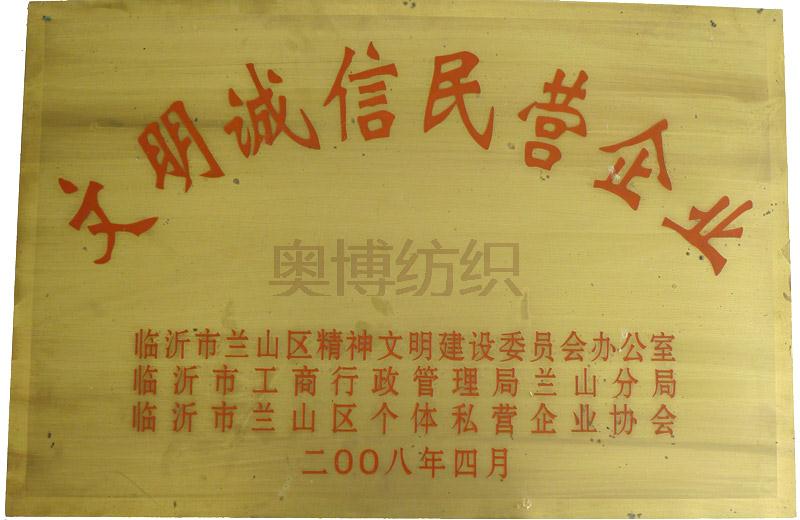 文明诚信民营企业
奥博纺织
临沂市兰山区精神文明建设委员会办公室
临沂市工商行政管理局兰山分局
临沂市兰山区个体私营企业协会
二〇〇八年四月